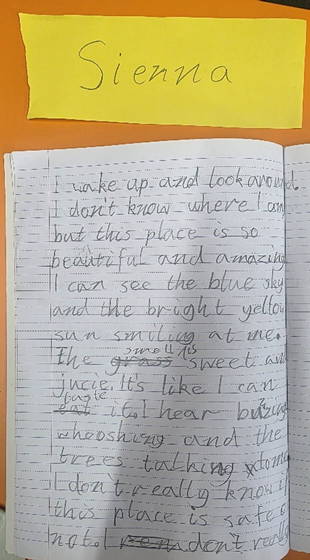 Sienna
I wake up and look around.
I don't know where I am
but this place is so
beautiful and amazing
I can see the blue sky
and the bright yellow
sun smiling at me.
The smells sweet and
jucie. It's like I can
taste it. I hear buzzing
whooshing and the
trees talking to me
I don't really know if
this place is safe or
not. I don't really